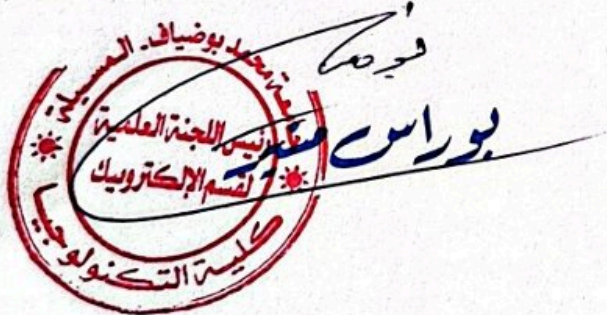 جامعة محمد بوضياف - المسيلة
رئيس اللجنة العلمية
لقسم الإلكترونيك
كلية التكنولوجيا
بوراس منير